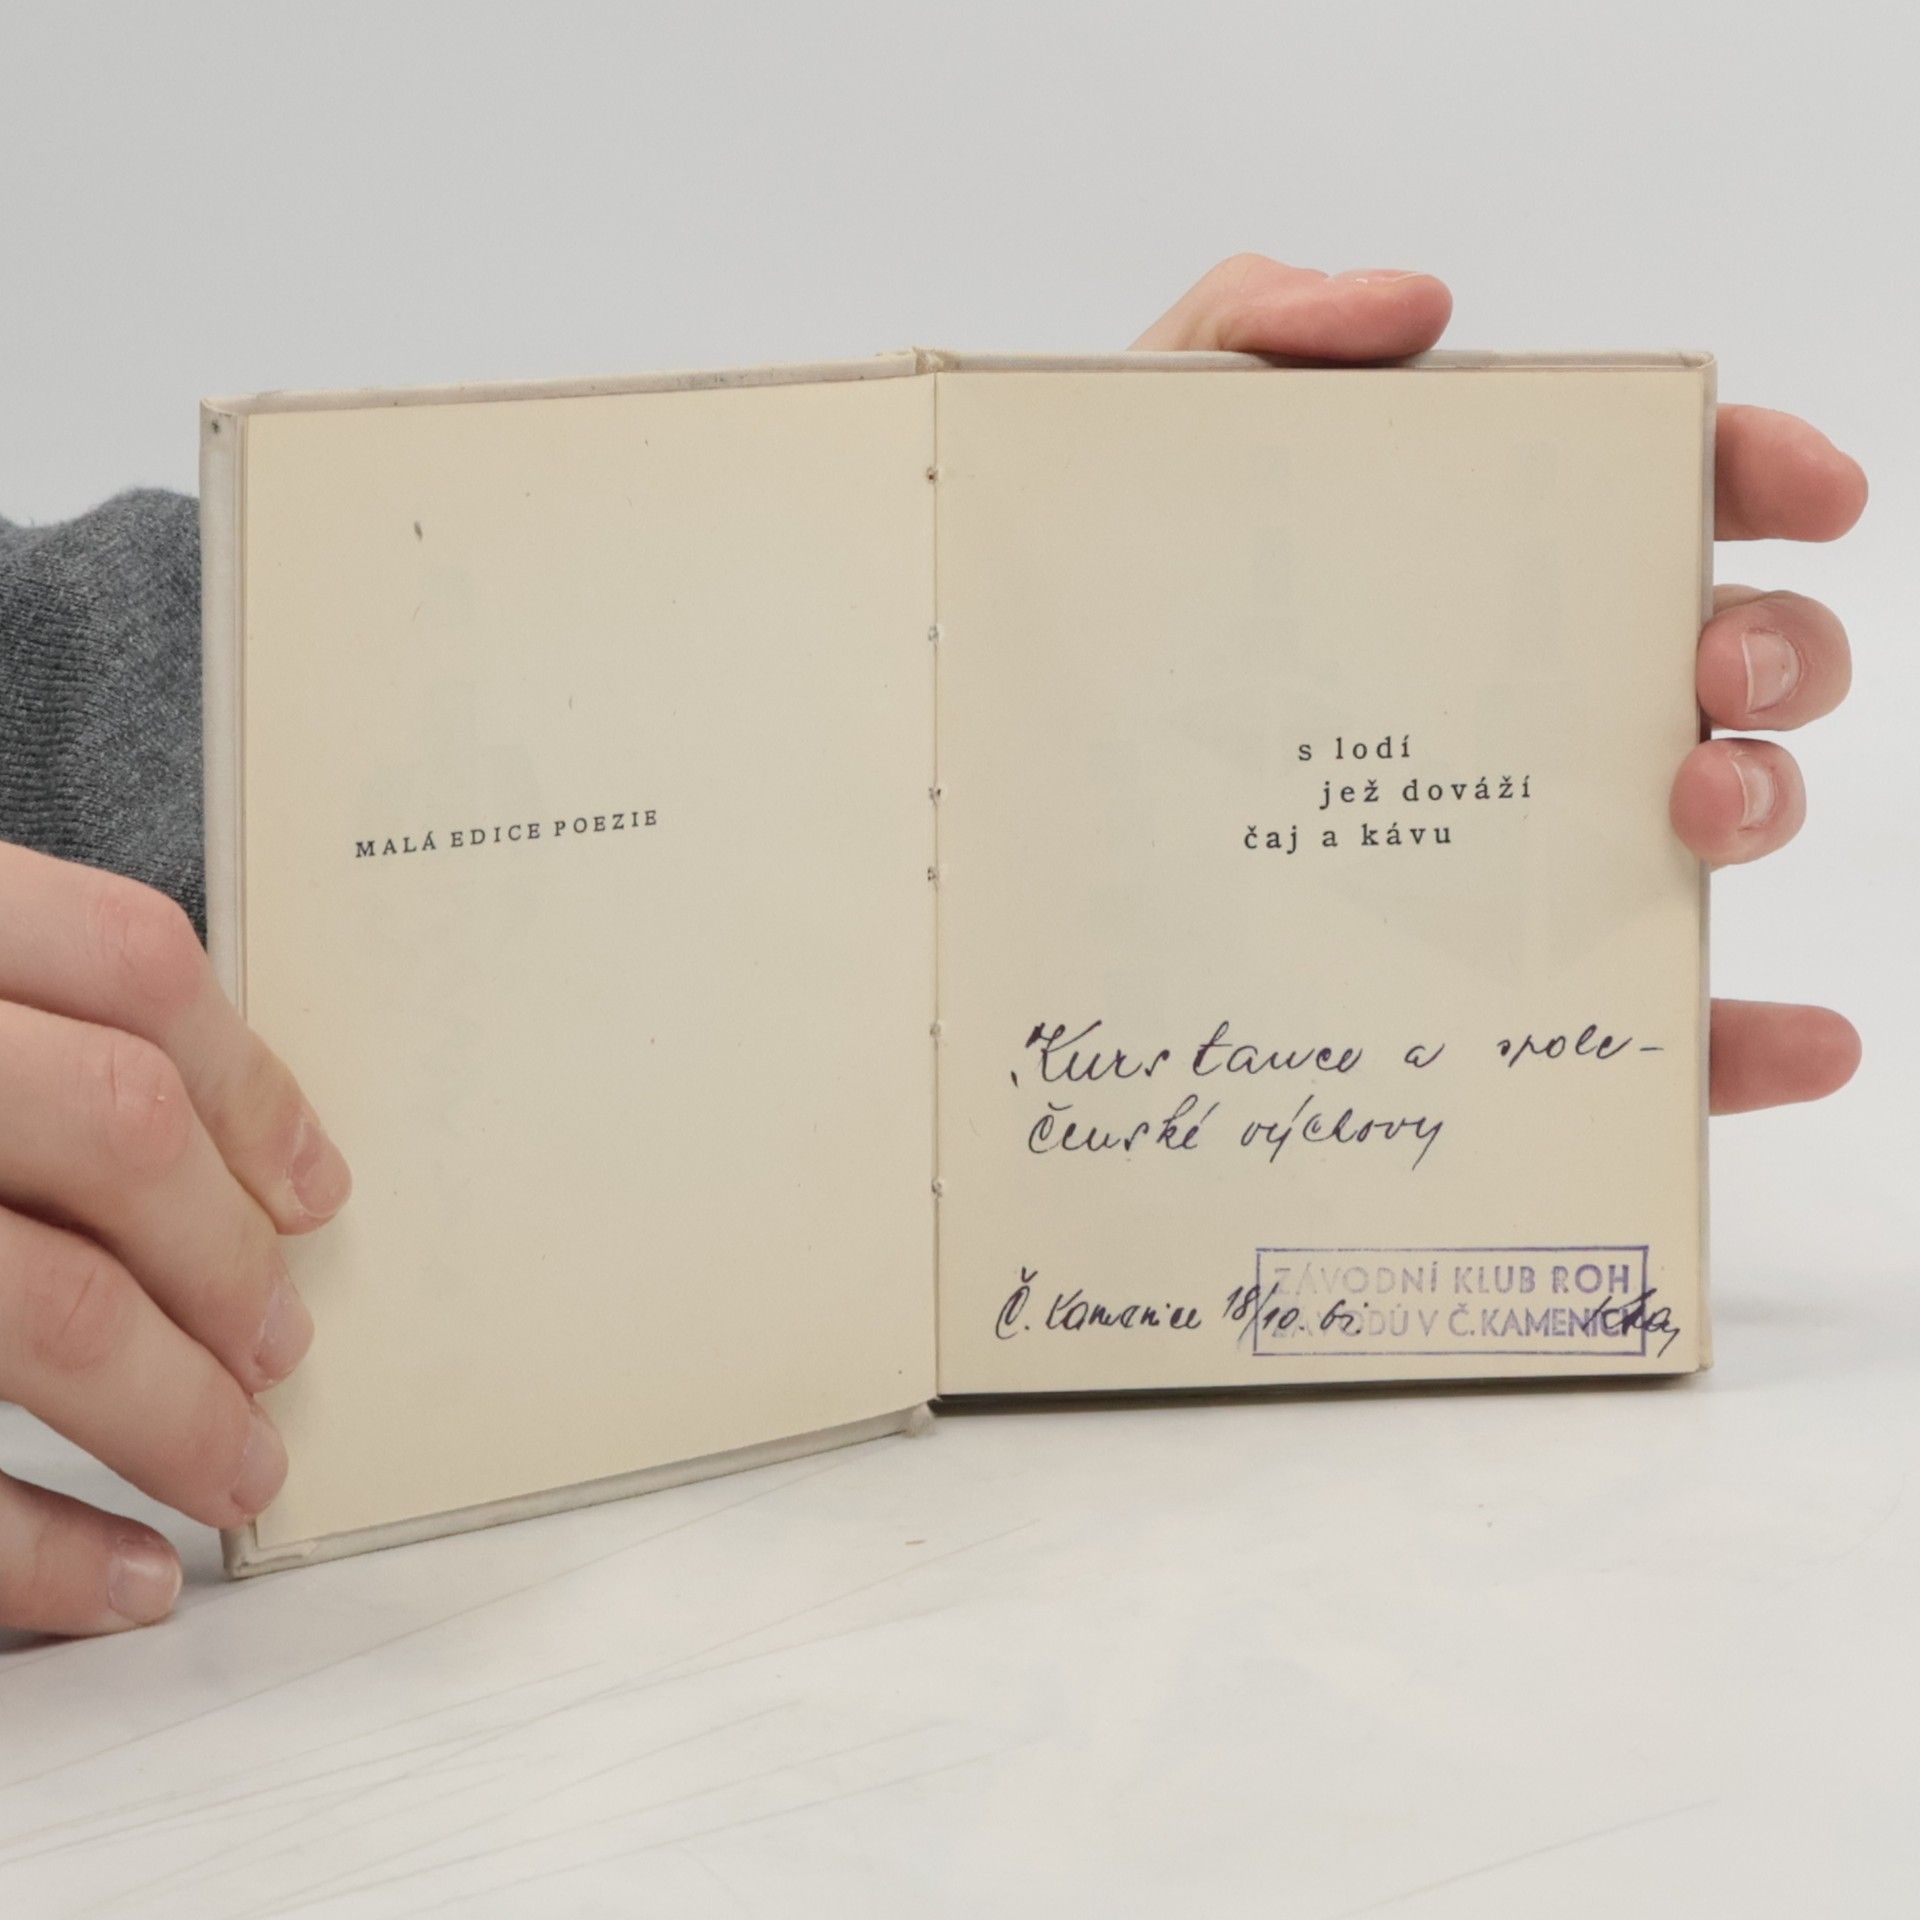 MALÁ EDICE POEZIE
s lodí
jež dováží
čaj a kávu
Kurs tance a spole-
čenské výchovy
Č. Kamenice 18/10. 61.
ZÁVODNÍ KLUB ROH
ZÁVODŮ V Č. KAMENICI